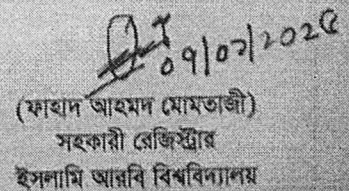 ০৭/০৭/২০২৫
(ফাহাদ আহমদ মোমতাজী)
সহকারী রেজিস্ট্রার
ইসলামি আরবি বিশ্ববিদ্যালয়